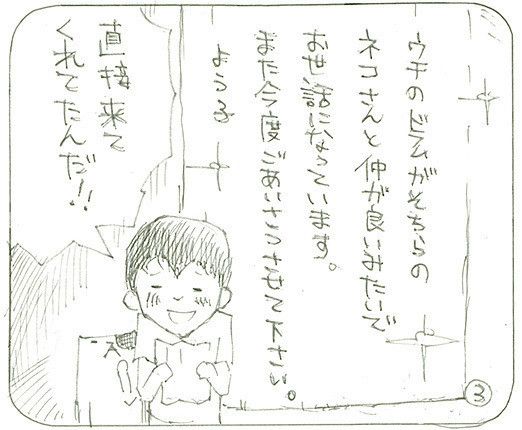 ウチのビムがそちらの
ネコさんと仲が良いみたいで
お世話になっています。
また今度ごあいさつさせて下さい。
ようこ
直接来て
くれてたんだ!!
③